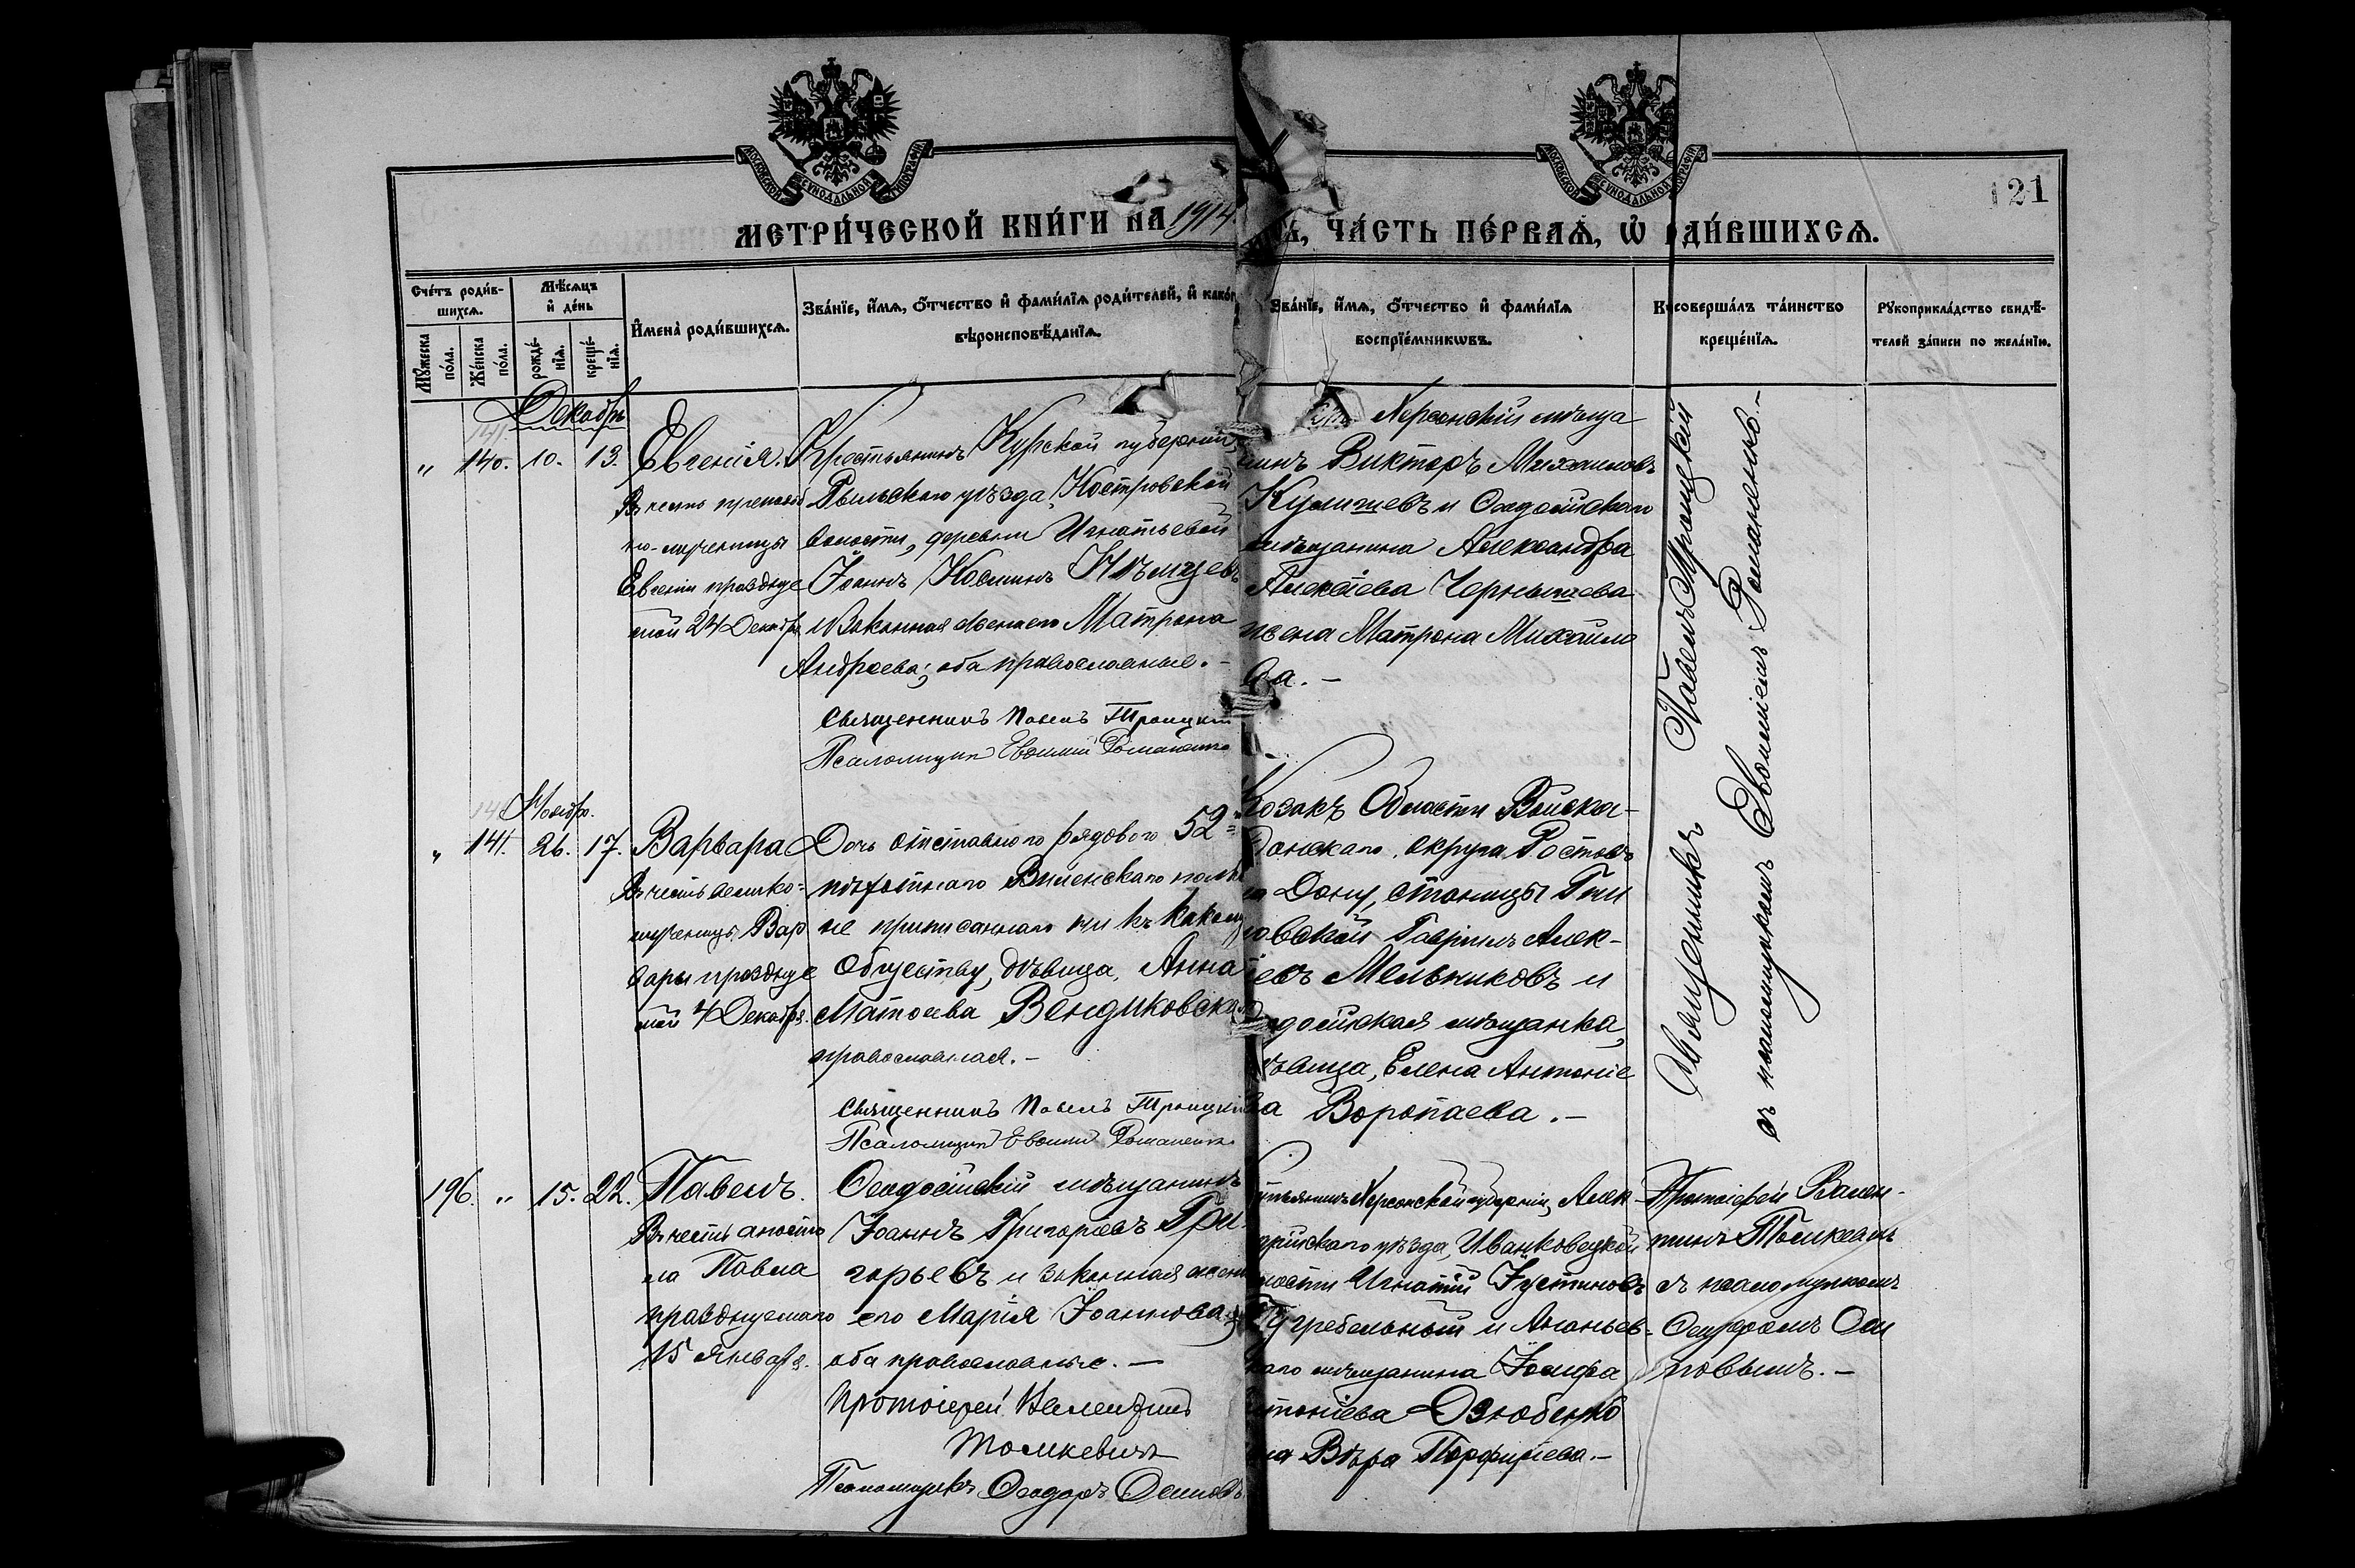 МОСКОВСКОЙ СѴНОДАЛЬНОЙ ТИПОГРАФІИ
МОСКОВСКОЙ СѴНОДАЛЬНОЙ ТИПОГРАФІИ
121
МЕТРИ́ЧЕСКОЙ КНИ́ГИ НА 1914
ЧА́СТЬ ПЕ́РВАЯ, Ѡ РОДИ́ВШИХСЯ.
Сче́тъ роди́в-
шихся.
Мѣ́сяцъ
и де́нь
Му́жеска
по́ла.
Же́нска
по́ла.
рожде́-
нія.
креще́-
нія.
И҆мена̀ роди́вшихся.
Зва́ніе, и҆́мя, о҆́тчество и҆ фами́лія роди́телей, и҆ како́г
вѣроисповѣ́данія.
Зва́ніе, и҆́мя, о҆́тчество и҆ фами́лія
воспріе́мникѡвъ.
Кто совершалъ та́инство
креще́нія.
Рукоприкла́дство свидѣ́-
телей за́писи по жела́нію.
Декабрь
141.
" 140. 10. 13. Евгенія.
Въ честь преподоб
но-мученицы
Евгеніи празднуе
мой 24 Декабря
Крестьянинъ Курской губерніи,
Рыльскаго уѣзда, Костровской
волости, деревни Игнатьевой
Іоаннъ Косминъ Нѣмцевъ
и законная жена его Матрона
Андреева; оба православные. -
Священникъ Павелъ Троицкій
Псаломщикъ Евѳимій Романенко
Херсонскій мѣща
нинъ Викторъ Михаиловъ
и Ѳеодосійскаго
мѣщанина Александра
Алексіева Чернышева
жена Матрона Михаило
ва. -
Священникъ Павелъ Троицкій
съ псаломщикомъ Евѳиміемъ Романенко. -
Ноябрь.
" 141. 26. 17. Варвара
Въ честь велико-
мученицы Вар
вары празднуе
мой 4 Декабря.
Дочь отставного рядового 52=
пѣхотнаго Виленскаго полка
не приписаннаго ни къ какому
обществу, дѣвица, Анна
Матѳеева Вендиковская
православная. -
Священникъ Павелъ Троицкій
Псаломщикъ Евѳимій Романенко
Козакъ Области Войска-
Донскаго, округа Ростовъ
на Дону, станицы Гни
ловской Гавріилъ Алек-
іевъ Мельниковъ и
Ѳеодосійская мѣщанка,
дѣвица, Елена Антоніе
ва Воропаева. -
196. " 15. 22. Павелъ.
Въ честь апосто
ла Павла
празднуемаго
15 Января.
Ѳеодосійскій мѣщанинъ
Іоаннъ Григоріевъ Гри-
горьевъ и законная жена
его Марія Іоаннова;
оба православные. -
Протоіерей Валентинъ
Томкевичъ
Псаломщикъ Ѳеодоръ Осиповъ
стьянинъ Херсонской губерніи, Алек-
дрійскаго уѣзда, Иванковецкой
лости Игнатій Іустиновъ
гребельный и Ананьев-
скаго мѣщанина Іосифа
Антоніева Дзюбенко
жена Вѣра Порфиріева. -
Протоіерей Вален-
тинъ Томкевичъ
съ псаломщикомъ
Ѳеодоромъ Оси
повымъ. -